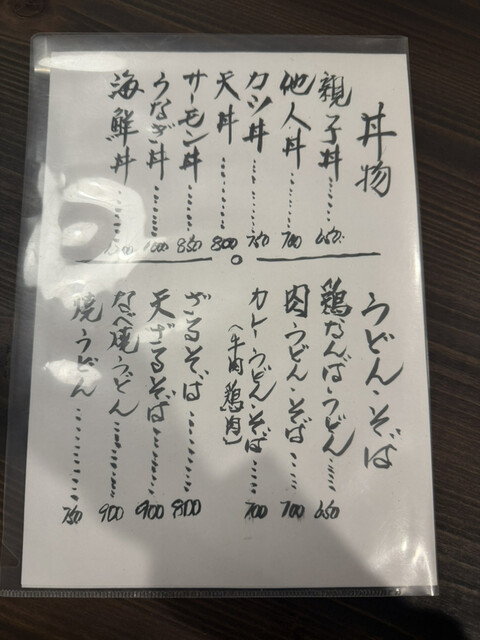 丼物
親子丼 650
他人丼 700
カツ丼 750
天丼 800
サーモン丼 850
うなぎ丼
海鮮丼
うどん・そば
鶏なんばうどん 650
肉うどん・そば 700
カレーうどん・そば 700
(牛肉 鶏肉)
ざるそば 800
天ざるそば 900
なべ焼うどん 900
焼うどん 750